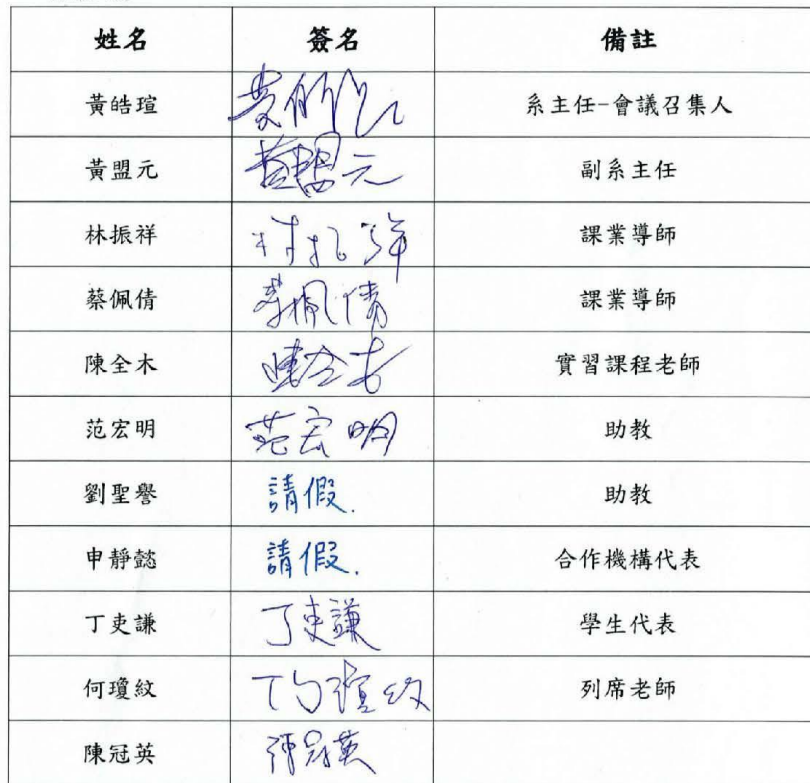 姓名 簽名 備註
黃皓瑄 系主任-會議召集人
黃盟元 黃盟元 副系主任
林振祥 林振祥 課業導師
蔡佩倩 蔡佩倩 課業導師
陳全木 陳全木 實習課程老師
范宏明 范宏明 助教
劉聖譽 請假. 助教
申靜懿 請假. 合作機構代表
丁吏謙 丁吏謙 學生代表
何瓊紋 何瓊紋 列席老師
陳冠英 陳冠英